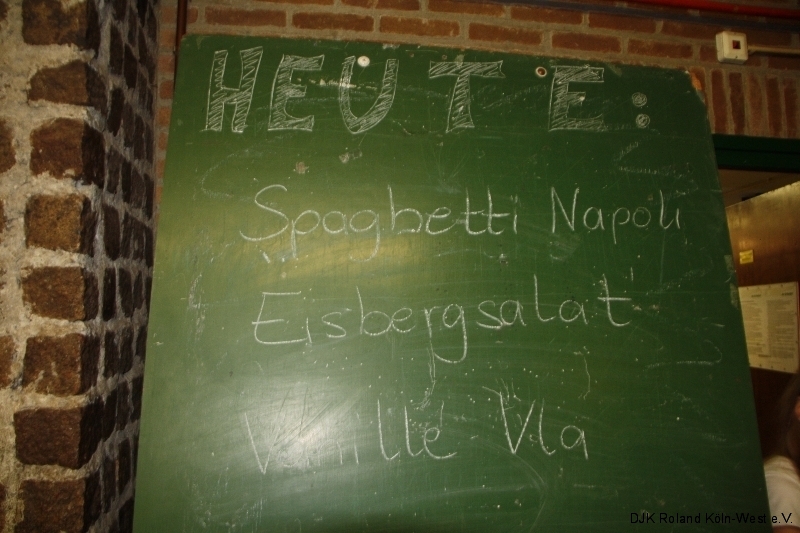 HEUTE:
Spaghetti Napoli
Eisbergsalat
Vanille Vla
DJK Roland Köln-West e.V.